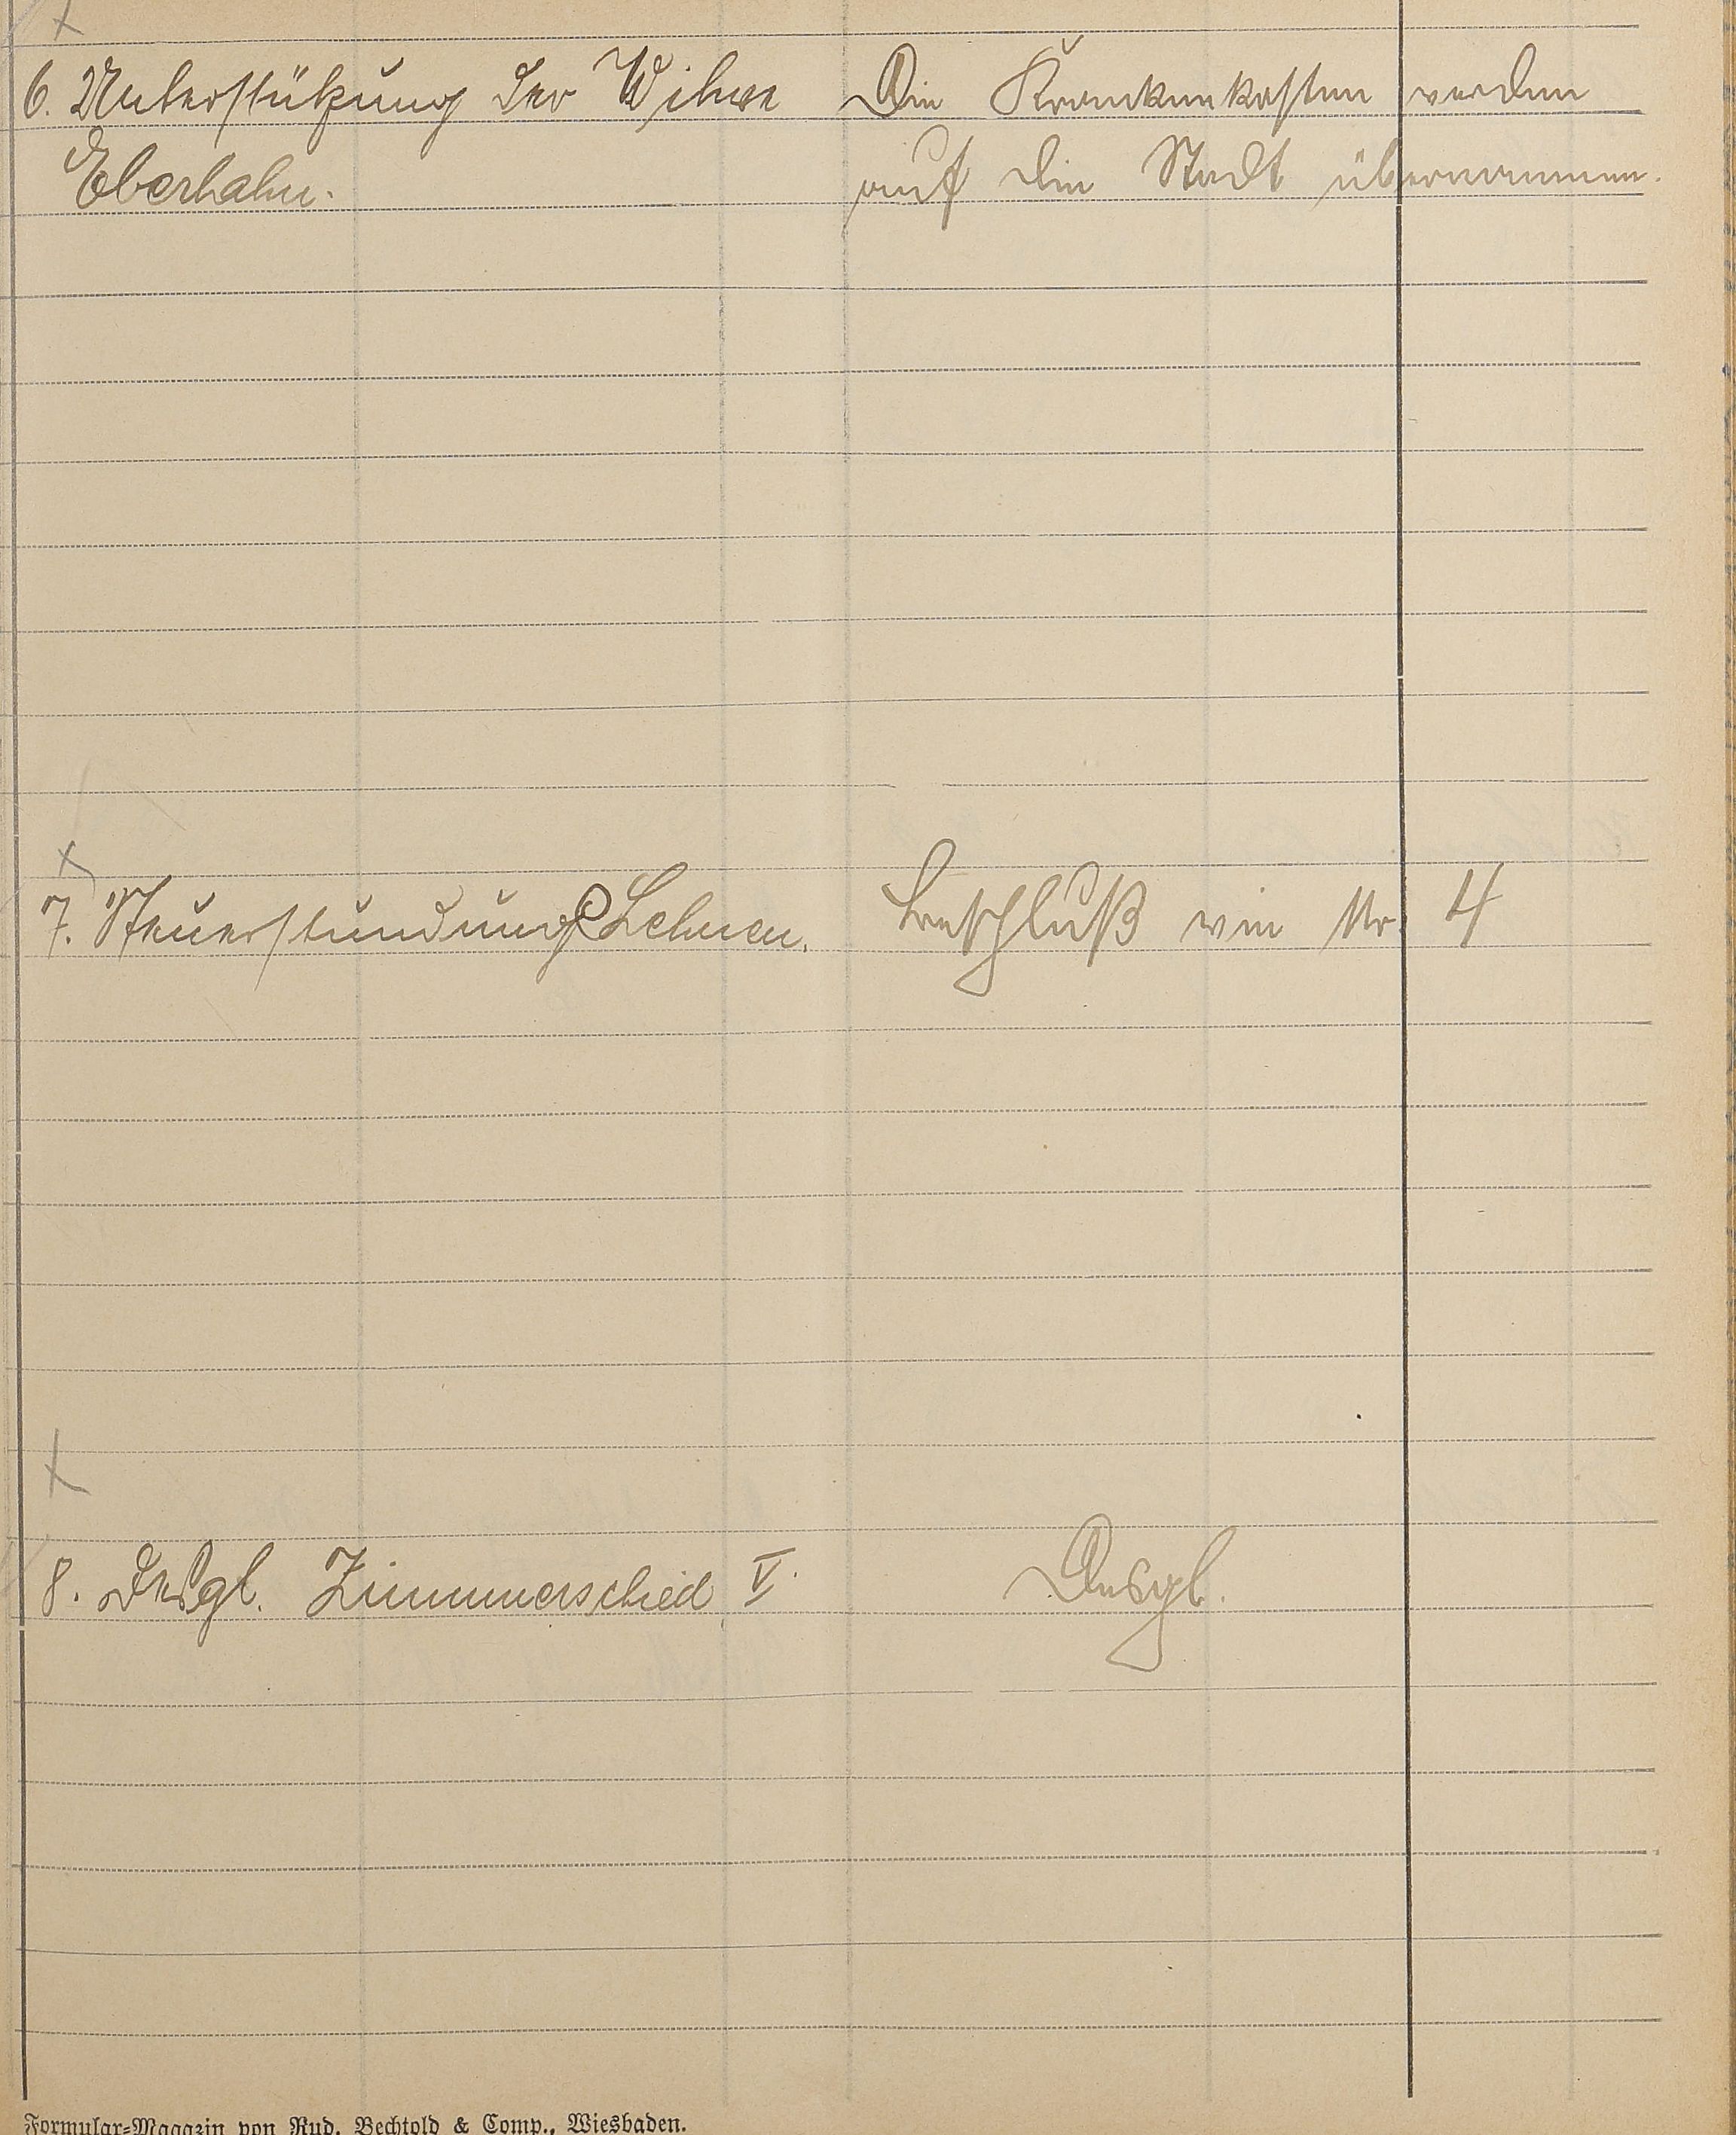 6. Unterstützung der Witwe
Eberhahn.
Die Krankenkosten werden
auf die Stadt übernommen.
7. Steuerstundung Lehnen.
Beschluß wie Nr. 4
8. Desgl. Zimmerschied V.
Desgl.
Formular=Magazin von Rud. Bechtold & Comp., Wiesbaden.